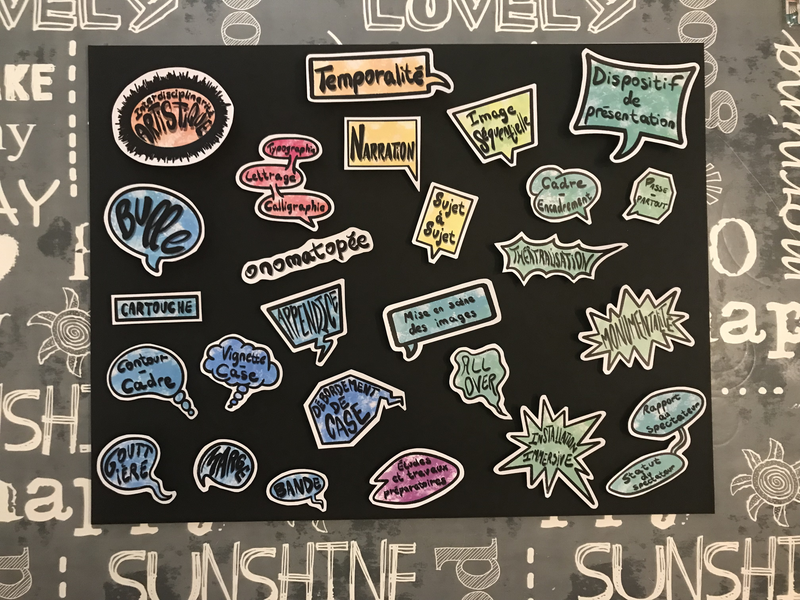 LOVELY
LOVELY
AKE
AY
SUNSHINE
SUNSHINE
Interdisciplinarité
ARTISTIQUE
Temporalité
Dispositif
de
présentation
Image
Séquentielle
NARRATION
Typographie
Lettrage
Calligraphie
Cadre
Encadrement
PASSE
-
PARTOUT
BULLE
Sujet
à
Sujet
onomatopée
THÉÂTRALISATION
CARTOUCHE
APPENDICE
Mise en scène
des images
MONUMENTALE
Contour
-
Cadre
Vignette
-
Case
DÉBORDEMENT
DE
CASE
ALL
OVER
Rapport
au
spectateur
Statut
du
spectateur
GOUTT
IÈRE
MARGE
BANDE
Études
et travaux
préparatoires
INSTALLATION
IMMERSIVE